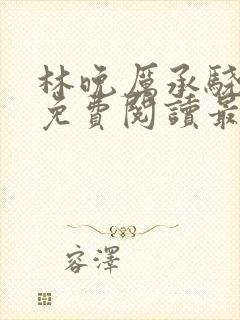 林晚厲承驍
免費閱讀最
容澤